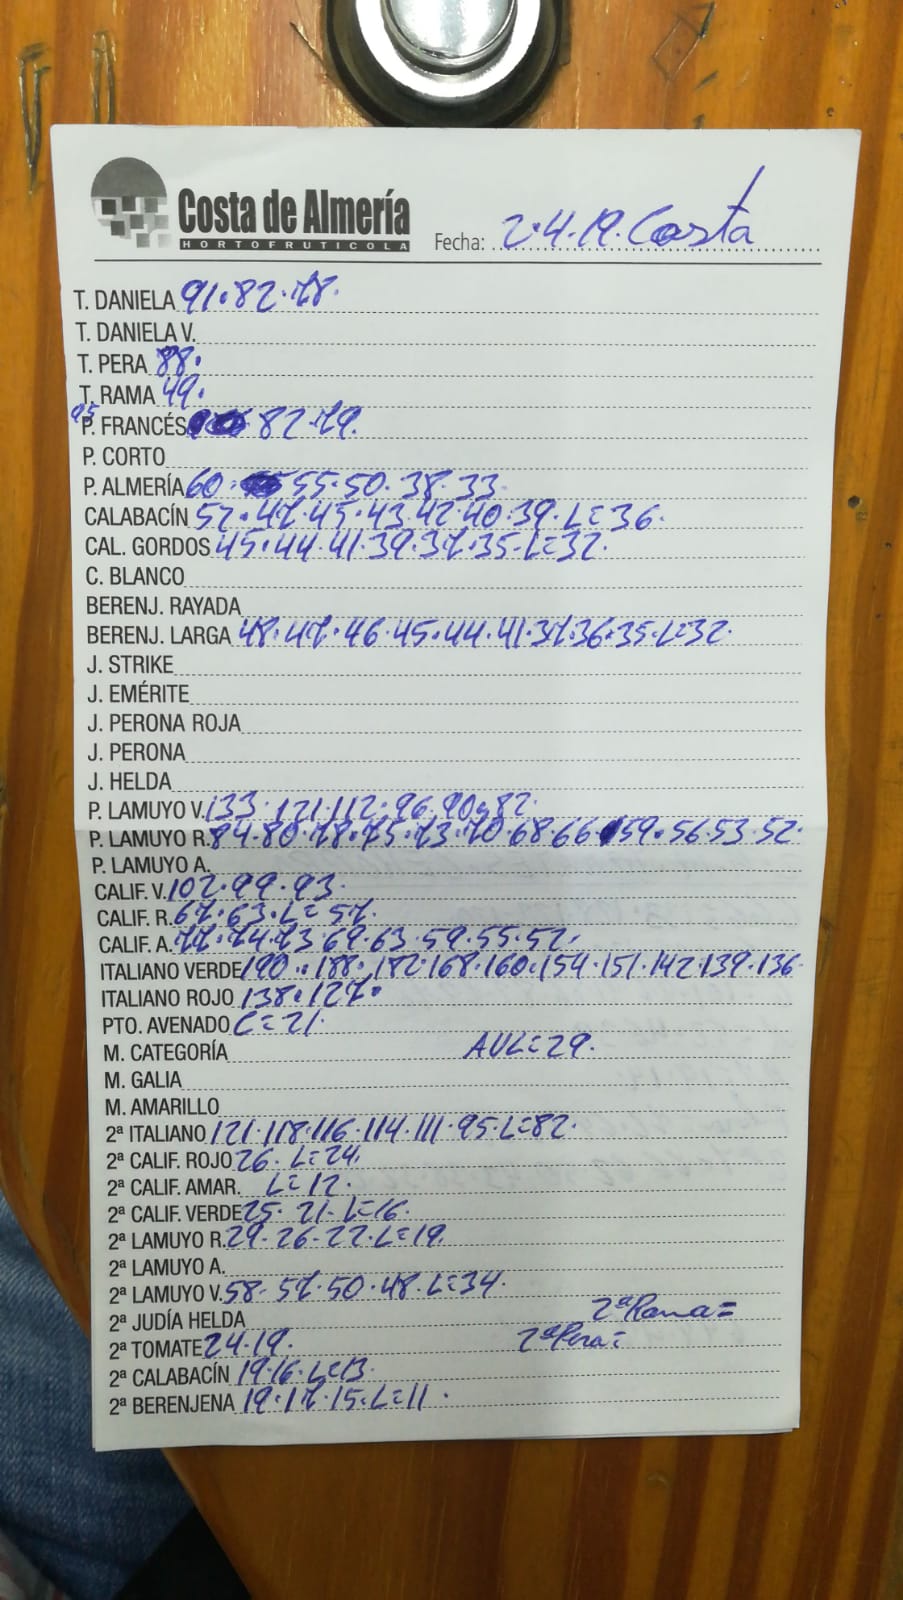 Costa de Almería
HORTOFRUTICOLA
Fecha: 2.4.19. Costa
T. DANIELA 91.82.78.
T. DANIELA V.
T. PERA 88.
T. RAMA 49.
95
P. FRANCÉS 82.79.
P. CORTO
P. ALMERÍA 60. 55.50.38.33.
CALABACÍN 52.47.45.43.42.40.39.L=36.
CAL. GORDOS 45.44.41.39.37.35.L=32.
C. BLANCO
BERENJ. RAYADA
BERENJ. LARGA 48.47.46.45.44.41.37.36.35.L=32.
J. STRIKE
J. EMÉRITE
J. PERONA ROJA
J. PERONA
J. HELDA
P. LAMUYO V. 133.121.112.96.90.82.
P. LAMUYO R. 84.80.78.75.73.70.68.66.59.56.53.52.
P. LAMUYO A.
CALIF. V. 102.99.93.
CALIF. R. 67.63.L=57.
CALIF. A. 77.74.73.69.63.59.55.52.
ITALIANO VERDE 190.188.182.168.160.154.151.142.139.136.
ITALIANO ROJO 138.127.
PTO. AVENADO L=21.
M. CATEGORÍA AVL=29.
M. GALIA
M. AMARILLO
2ª ITALIANO 121.118.116.114.111.95.L=82.
2ª CALIF. ROJO 26.L=24.
2ª CALIF. AMAR. L=12.
2ª CALIF. VERDE 25.21.L=16.
2ª LAMUYO R. 29.26.22.L=19.
2ª LAMUYO A.
2ª LAMUYO V. 58.57.50.48.L=34.
2ª JUDÍA HELDA 2ªRama=
2ª TOMATE 24.19. 2ªPera=
2ª CALABACÍN 19.16.L=13.
2ª BERENJENA 19.17.15.L=11.